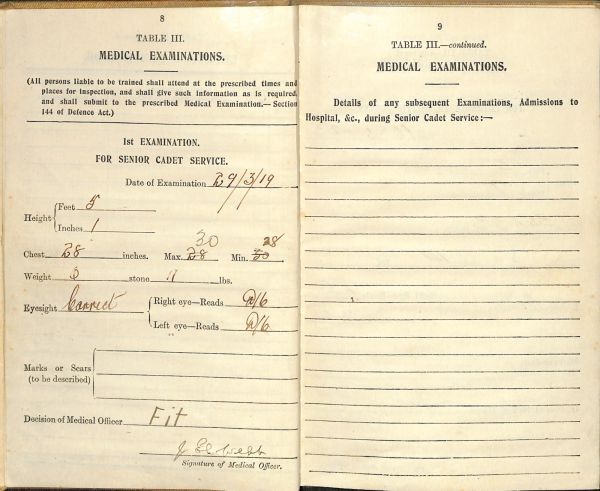 8
TABLE III.
MEDICAL EXAMINATIONS.
(All persons liable to be trained shall attend at the prescribed times and
places for inspection, and shall give such information as is required,
and shall submit to the prescribed Medical Examination.—Section
144 of Defence Act.)
1st EXAMINATION.
FOR SENIOR CADET SERVICE.
Date of Examination 29/3/19
Height Feet 5
Inches 1
Chest 28 inches. Max. 28 30 Min. 30 28
Weight stone lbs.
Eyesight Correct Right eye—Reads 6/6
Left eye—Reads 6/6
Marks or Scars
(to be described)
Decision of Medical Officer Fit
Signature of Medical Officer.
9
TABLE III.—continued.
MEDICAL EXAMINATIONS.
Details of any subsequent Examinations, Admissions to
Hospital, &c., during Senior Cadet Service:—